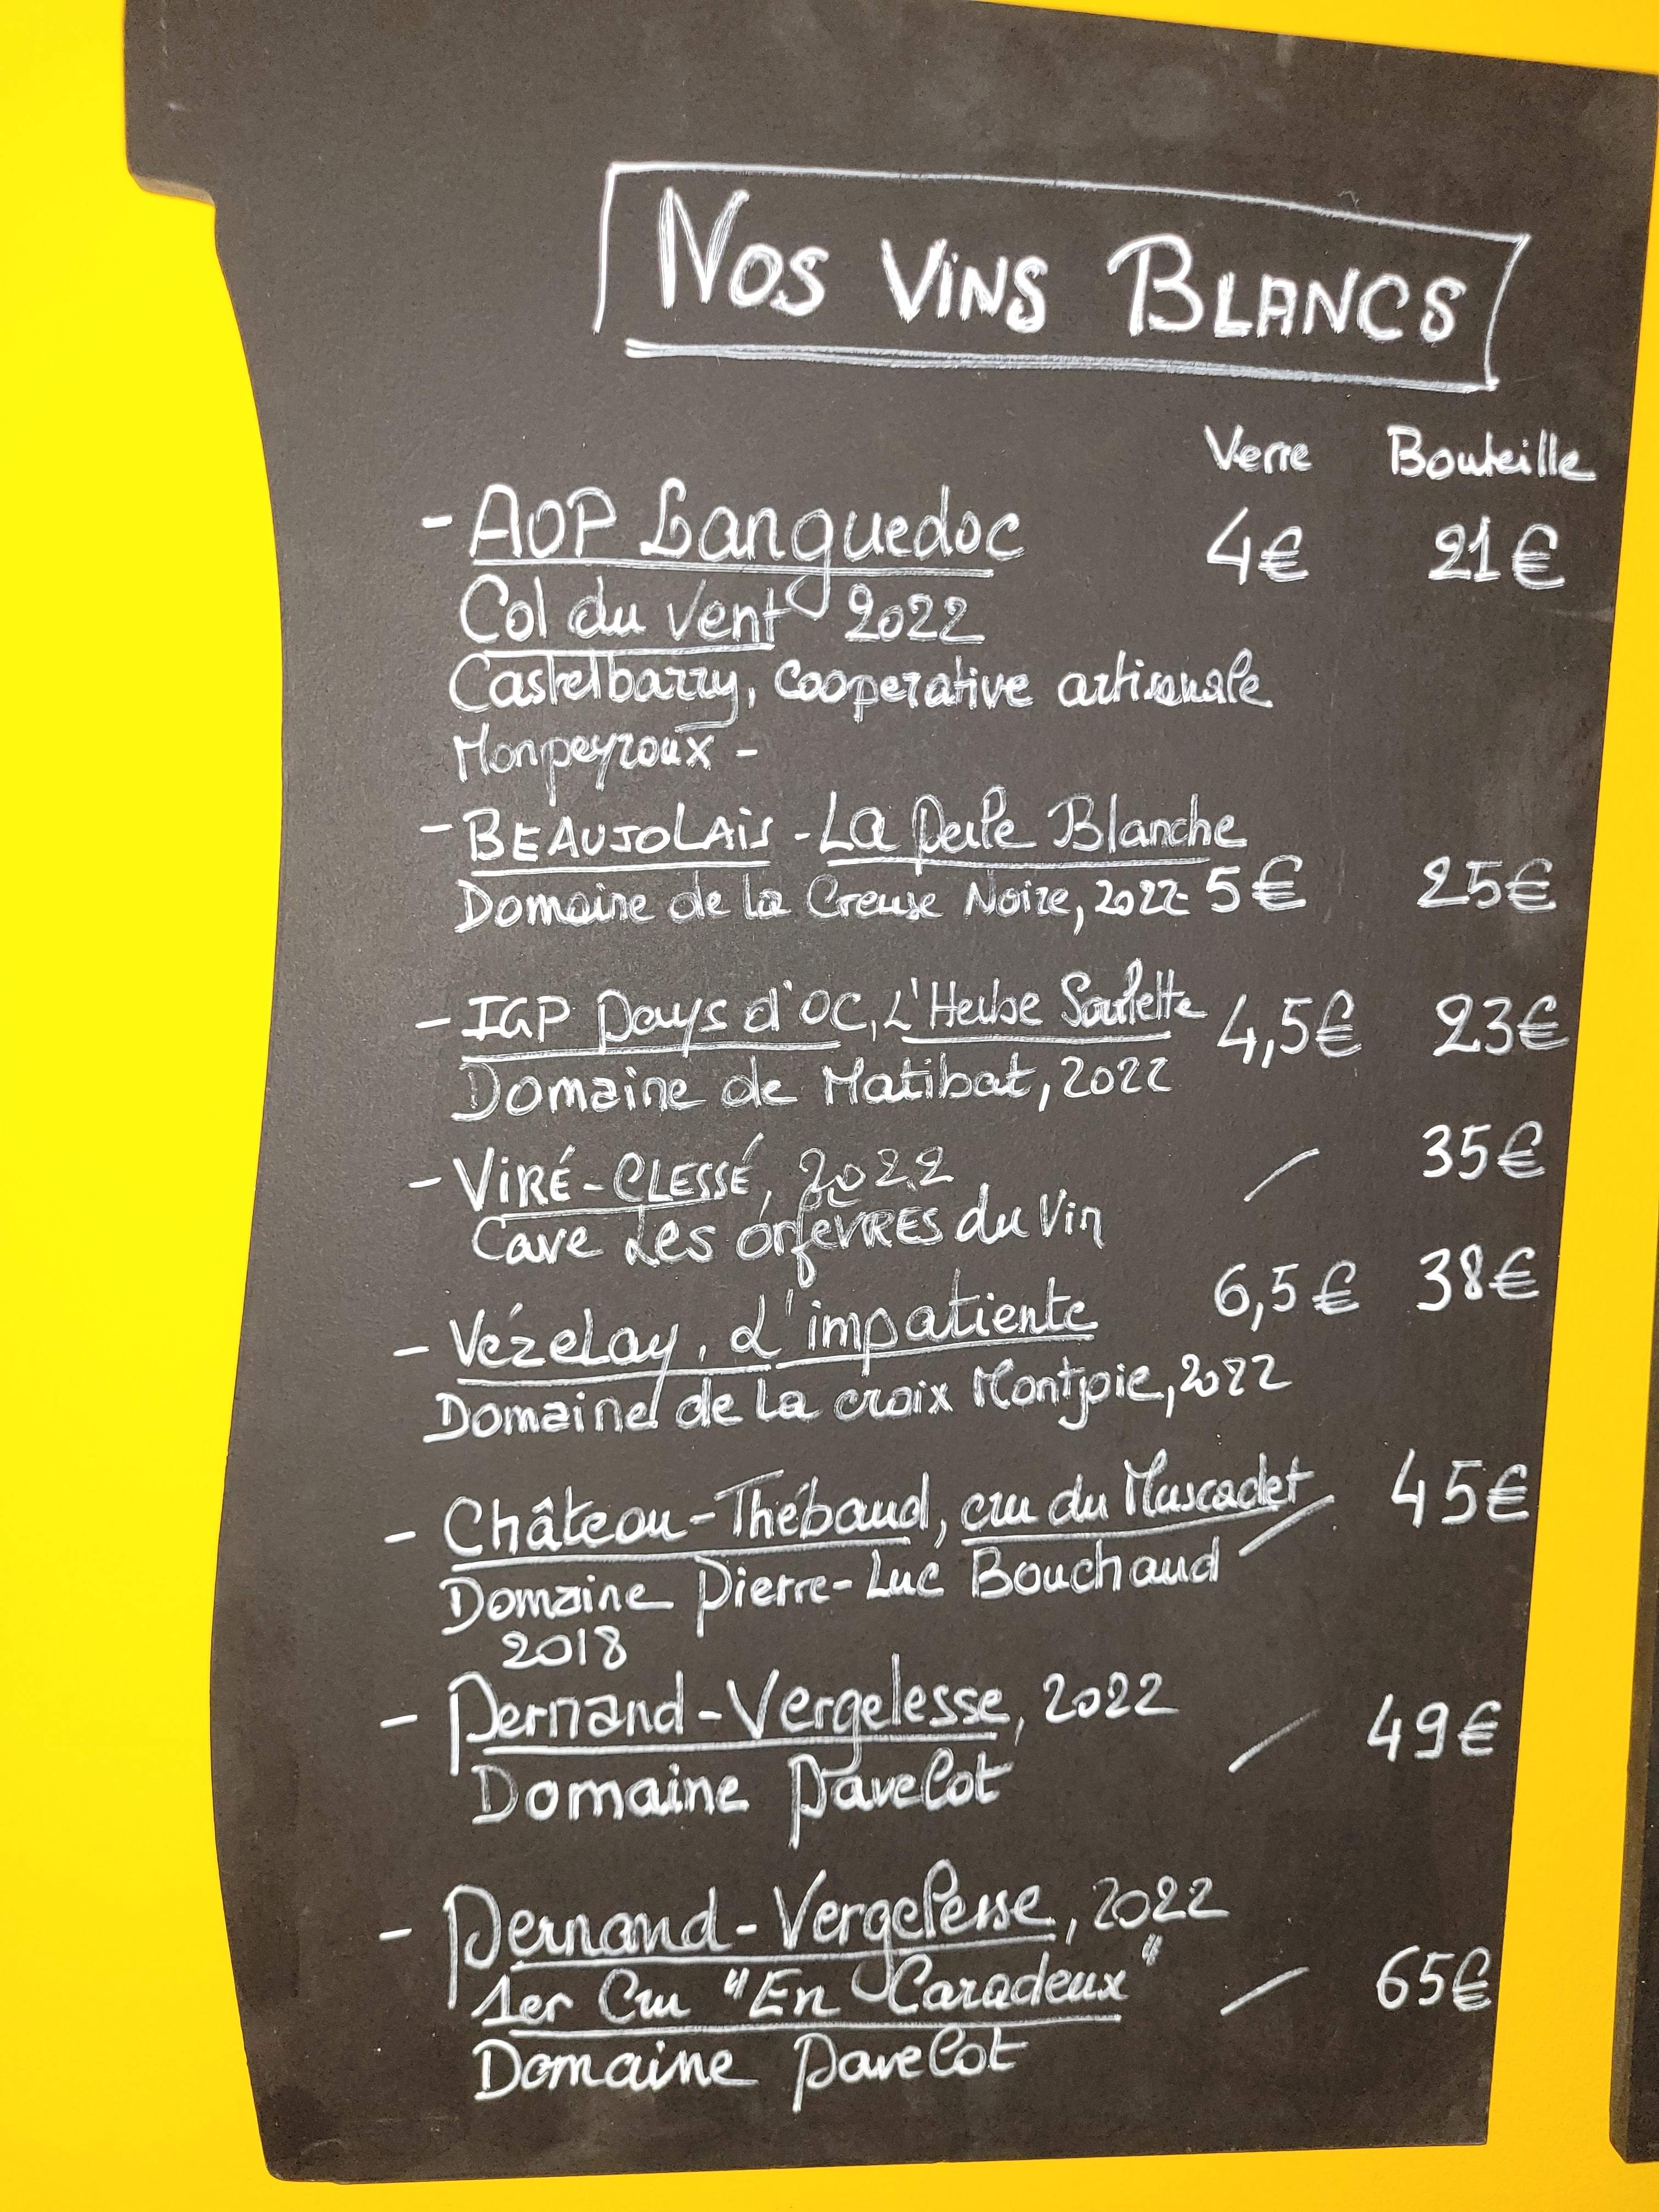 Nos Vins Blancs
Verre Bouteille
- AOP Languedoc 4€ 21€
Col du Vent 2022
Castelbarry, Cooperative artisanale
Monpeyroux -
- BEAUJOLAis - La Perle Blanche
Domaine de la Creuse Noire, 2022 5€ 25€
- IGP Pays d'OC, L'Herbe Soulette 4,5€ 23€
Domaine de Matibat, 2022
- ViRÉ-CLESSÉ, 2022 / 35€
Cave Les orfèvRES du Vin
- Vézelay, L'impatiente 6,5€ 38€
Domaine de la croix Montjoie, 2022
- Château-Thébaud, cru du Muscadet / 45€
Domaine Pierre-Luc Bouchaud
2018
- Pernand-Vergelesse, 2022 / 49€
Domaine Pavelot
- Pernand-Vergelesse, 2022
1er Cru "En Caradeux" / 65€
Domaine Pavelot